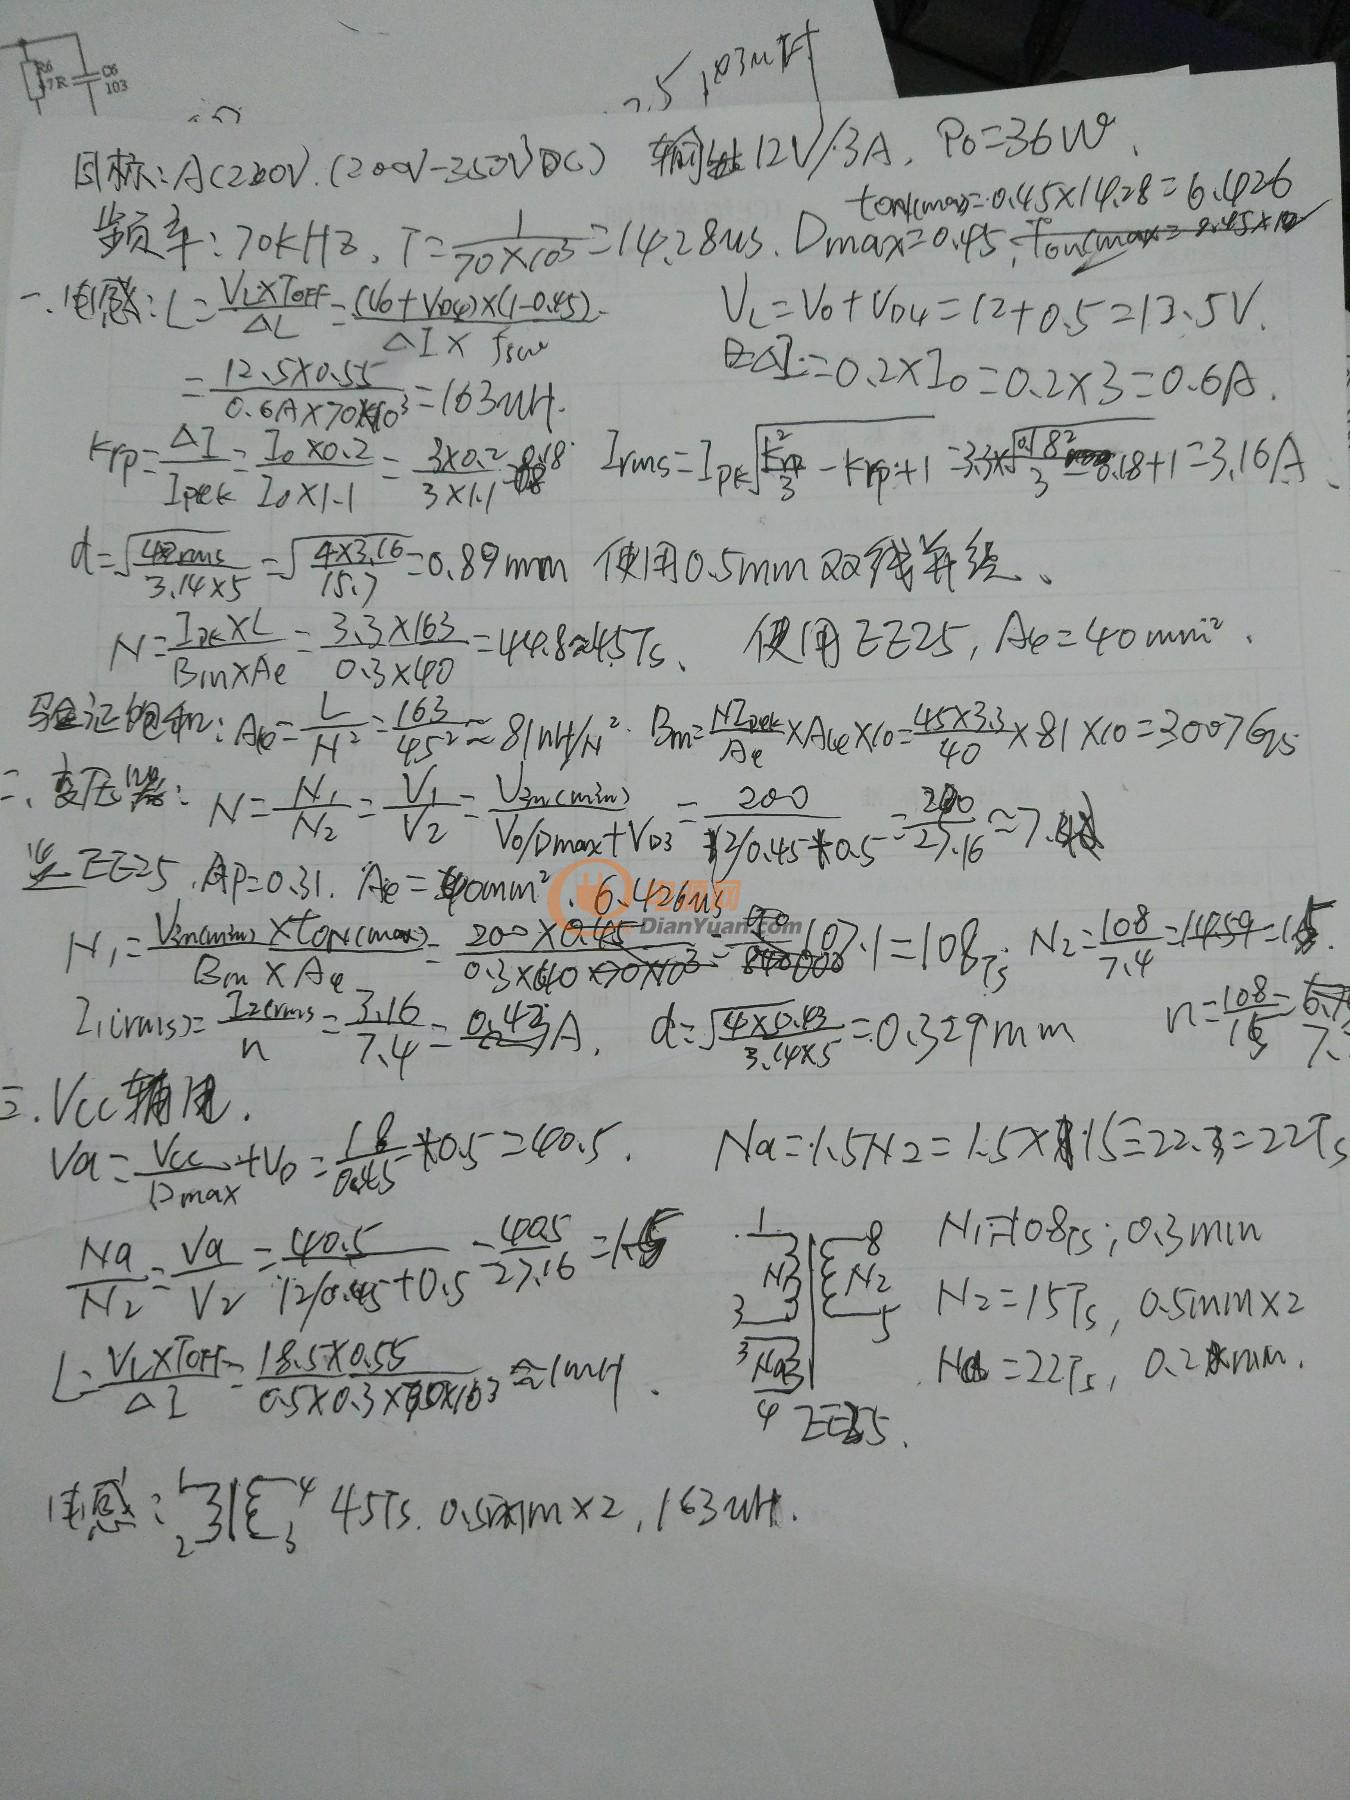 R6
C6
103
目标: AC220V. (200V-350VDC) 输出12V/3A. Po=36W.
ton(max)=0.45×14.28=6.426
频率: 70KHZ. T=1/70×10³=14.28us. Dmax=0.45.
一. 电感: L=VL×TOFF/ΔL=(Vo+VD4)×(1-0.45)/ΔI×fsw
VL=Vo+VD4=12+0.5=13.5V.
=12.5×0.55/0.6A×70×10³=163uH.
ΔI=0.2×Io=0.2×3=0.6A.
Krp=ΔI/Ipeek=Io×0.2/Io×1.1=3×0.2/3×1.1=0.18 Irms=IPK√Krp²/3-Krp+1=3.3×√0.18²/3-0.18+1=3.16A.
d=√4Irms/3.14×5=√4×3.16/15.7=0.89mm 使用0.5mm双线并绕.
N=IPK×L/Bm×Ae=3.3×163/0.3×40=44.8≈45Ts. 使用EE25, Ae=40mm².
验证饱和: Ale=L/N²=163/45²≈81nH/N². Bm=NIpek/Ae×Ale×10=45×3.3/40×81×10=3007Gs
二. 变压器: N=N1/N2=V1/V2=Vin(min)/Vo/Dmax+VD3=200/12/0.45+0.5=200/27.16≈7.4
选EE25. AP=0.31. Ae=40mm². 6.426us
电源网
DianYuan.com
N1=Vin(min)×tON(max)/Bm×Ae=200×0.45/0.3×40×70×10³=107.1=108Ts N2=108/7.4=14.59=15.
I1(rms)=I2(rms)/n=3.16/7.4=0.43A. d=√4×0.43/3.14×5=0.329mm n=108/15=
三. Vcc辅助.
Va=Vcc/Dmax+VD=18/0.45+0.5=40.5. Na=1.5N2=1.5×15=22.5=22Ts
Na/N2=Va/V2=40.5/12/0.45+0.5=40.5/27.16=1.5
1 8
N1 N2
3 5
3 Na
4 EE25.
N1=108Ts; 0.3mm
N2=15Ts, 0.5mm×2
Na=22Ts, 0.2mm.
L=VL×TOFF/ΔI=18.5×0.55/0.5×0.3×70×103≈1mH.
电感: 1 2 4 3 45Ts. 0.5mm×2, 163uH.